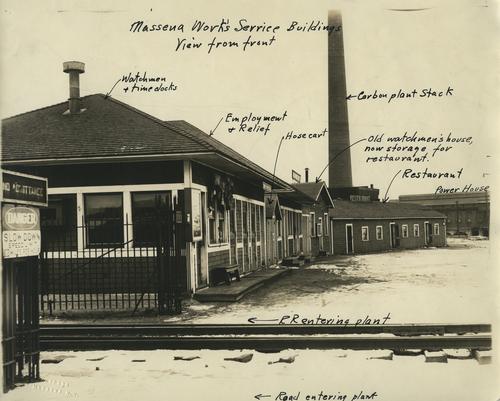 Massena Works Service Buildings
View from front
Watchmen
& timeclocks
Employment
& Relief
Hose cart
Carbon plant Stack
Old watchmen's house,
now storage for
restaurant.
Restaurant
Power House
RESTAURANT
NO ADMITTANCE
DANGER
SLOW DOWN
RR entering plant
Road entering plant